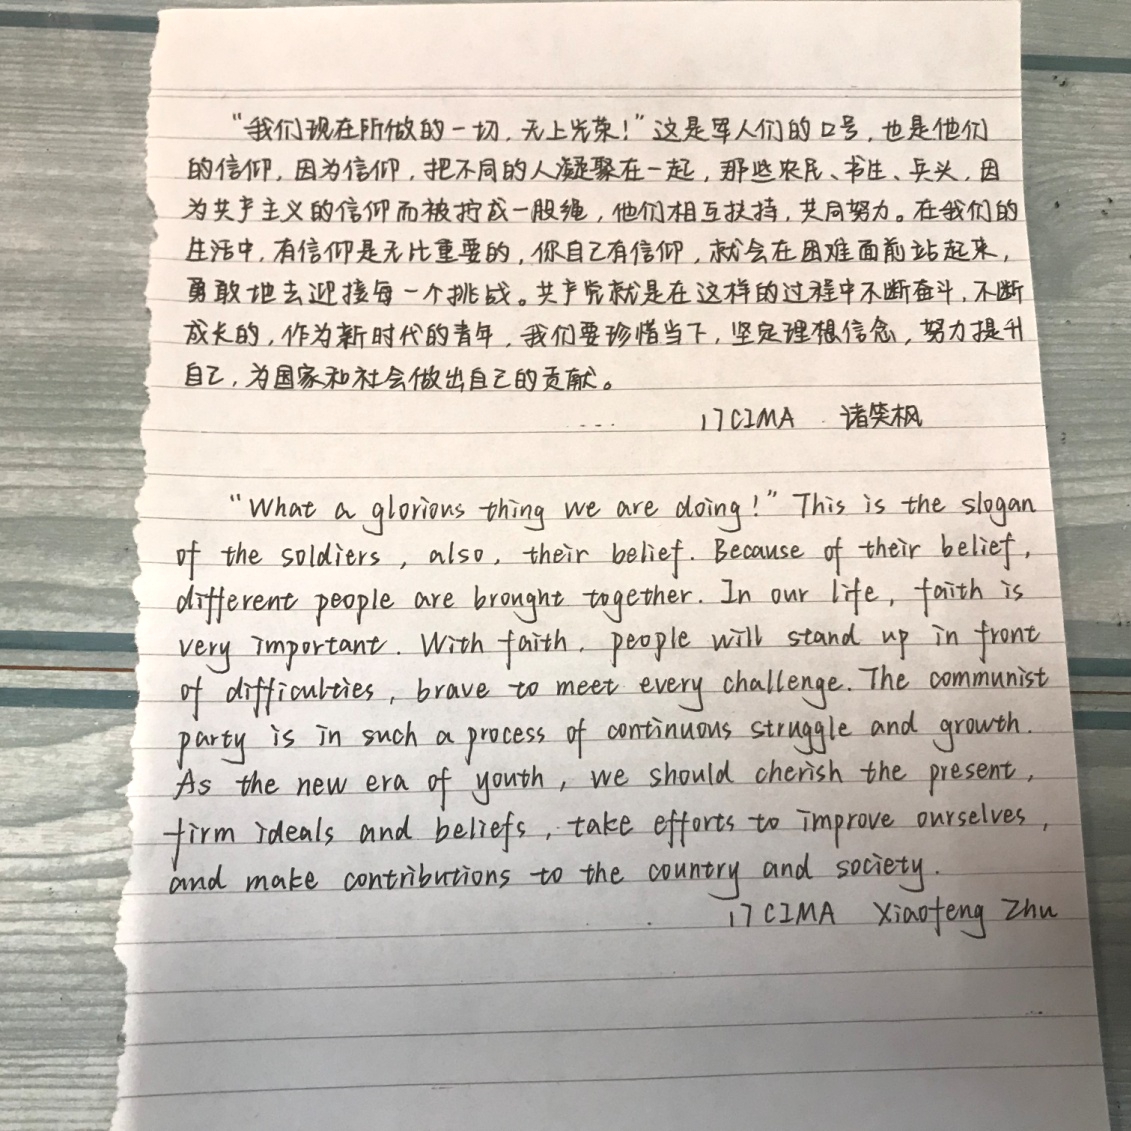 “我们现在所做的一切，无上光荣！”这是军人们的口号，也是他们
的信仰，因为信仰，把不同的人凝聚在一起，那些农民、书生、兵头，因
为共产主义的信仰而被拧成一股绳，他们相互扶持，共同努力。在我们的
生活中，有信仰是无比重要的，你自己有信仰，就会在困难面前站起来，
勇敢地去迎接每一个挑战。共产党就是在这样的过程中不断奋斗，不断
成长的，作为新时代的青年，我们要珍惜当下，坚定理想信念，努力提升
自己，为国家和社会做出自己的贡献。
17CIMA 诸笑枫
“What a glorious thing we are doing!” This is the slogan
of the soldiers, also, their belief. Because of their belief,
different people are brought together. In our life, faith is
very important. With faith, people will stand up in front
of difficulties, brave to meet every challenge. The communist
party is in such a process of continuous struggle and growth.
As the new era of youth, we should cherish the present,
firm ideals and beliefs, take efforts to improve ourselves,
and make contributions to the country and society.
17CIMA Xiaofeng Zhu